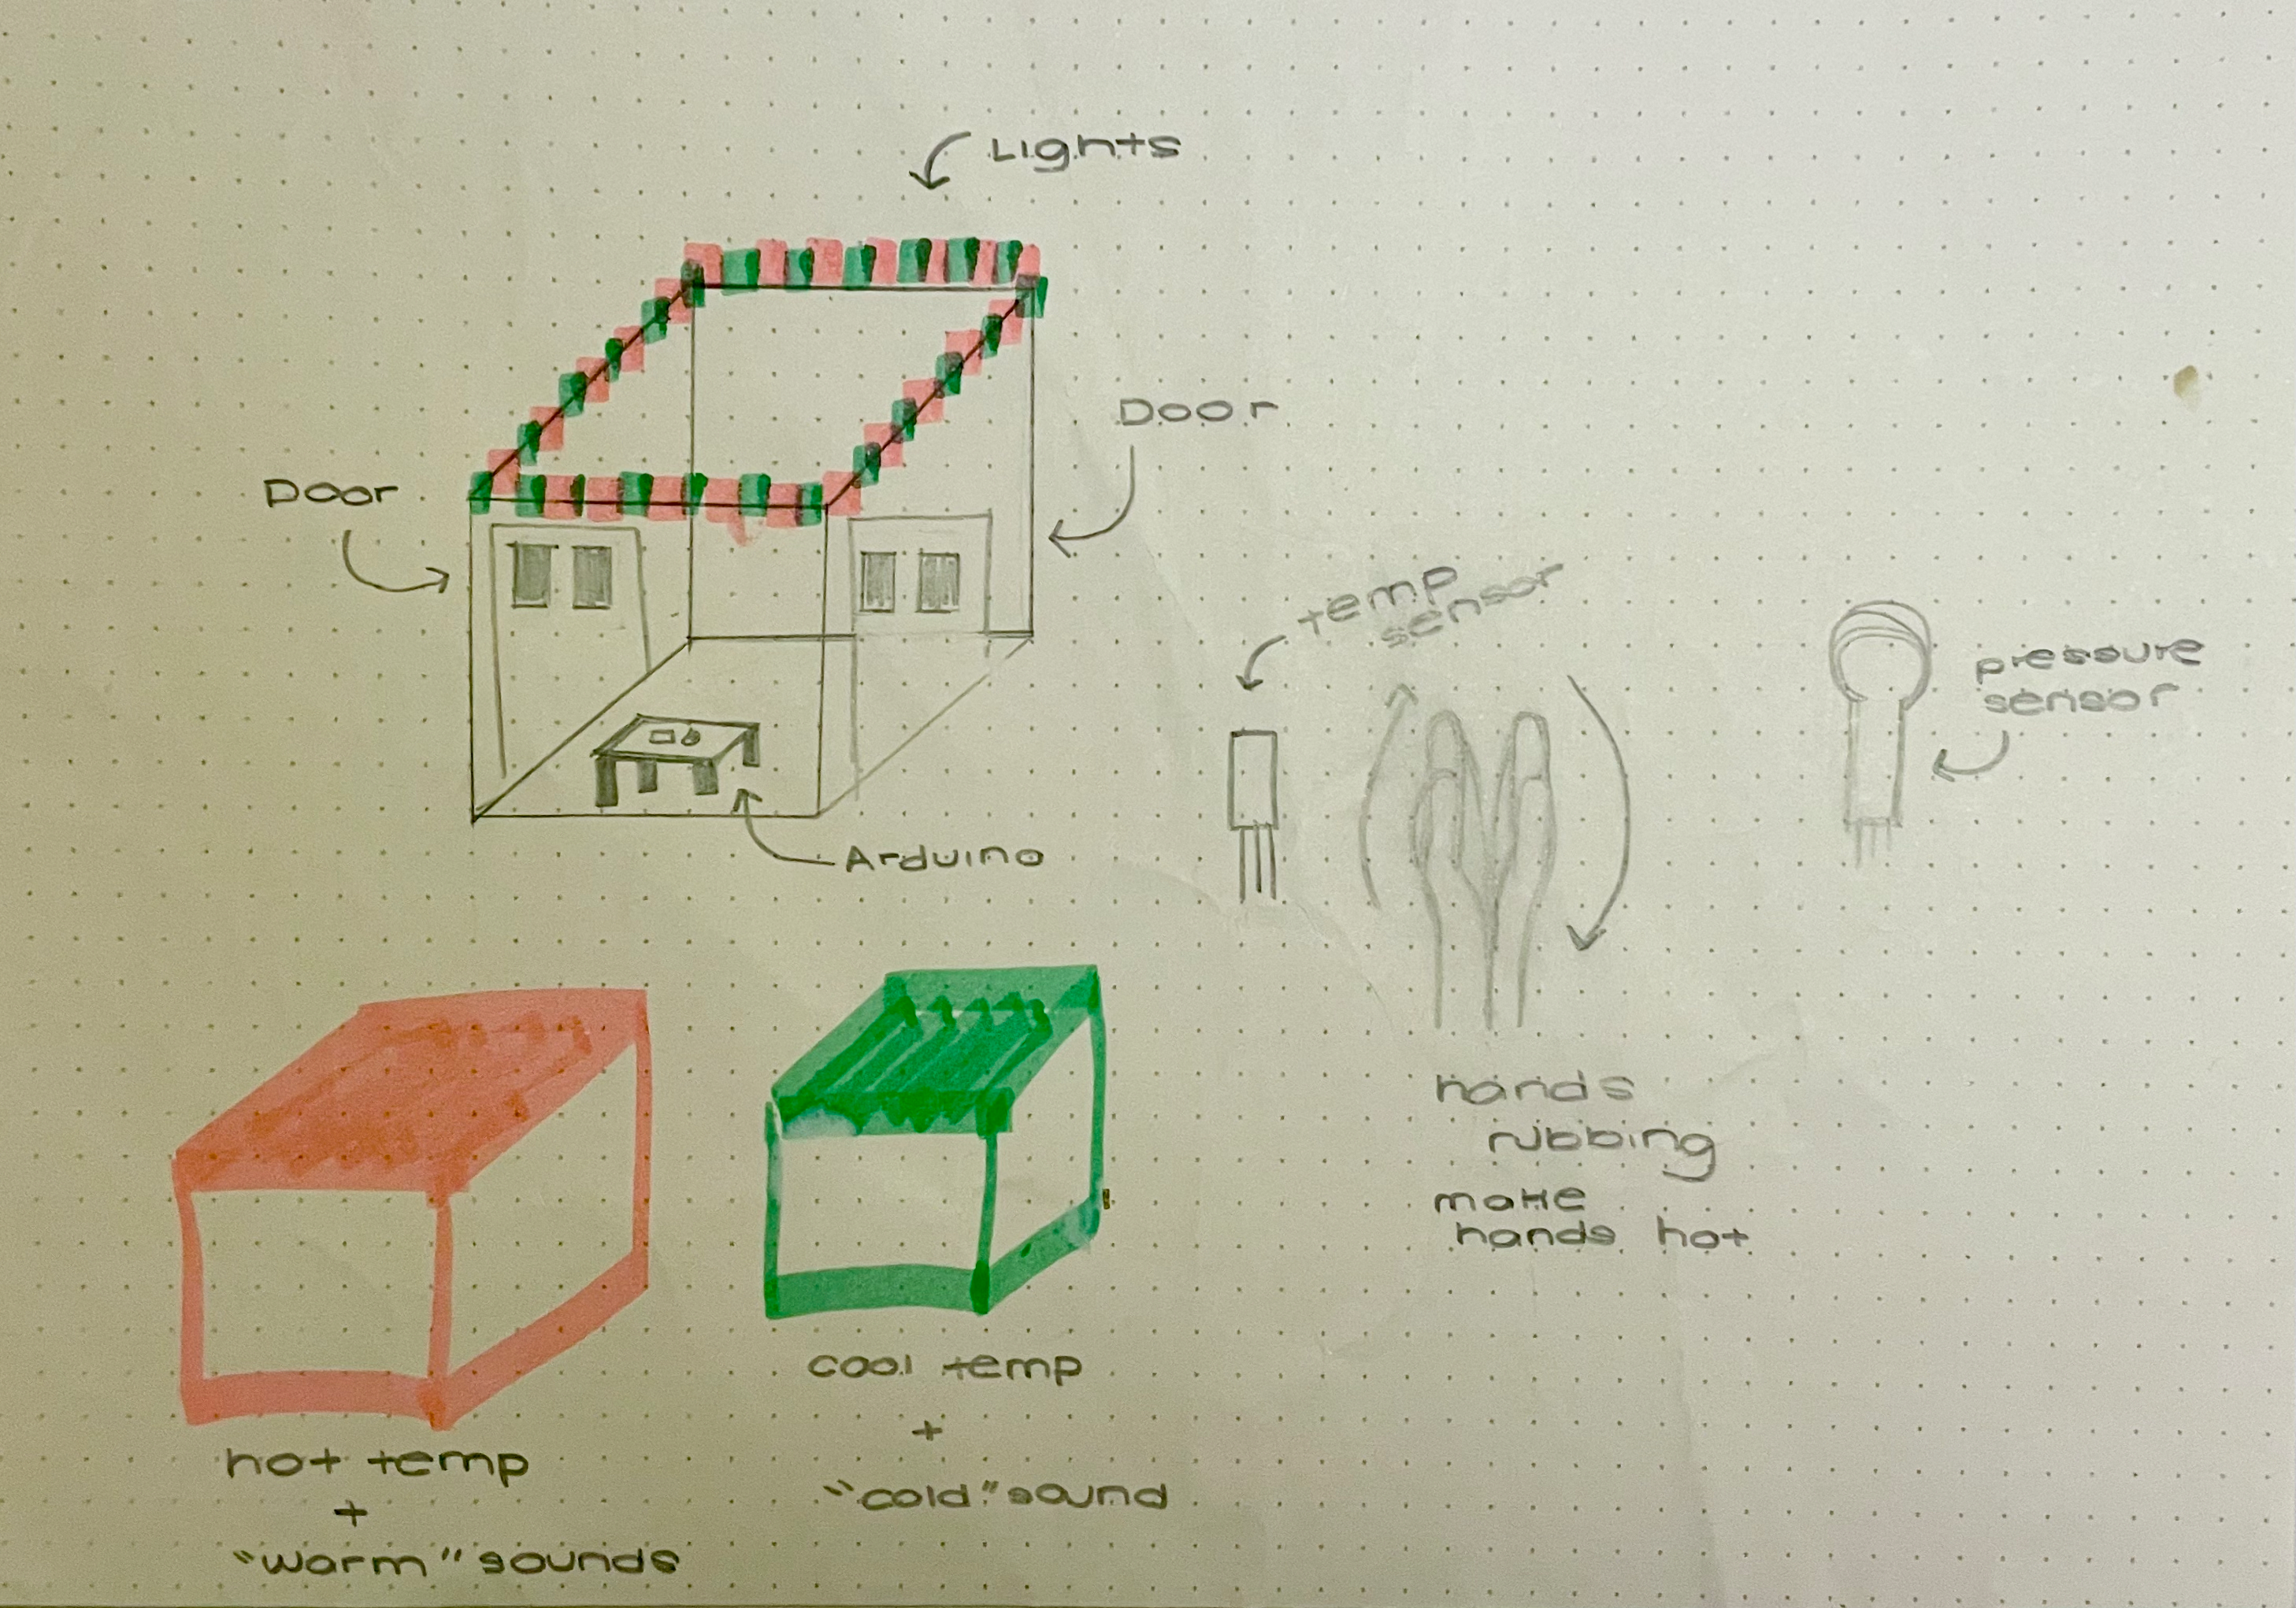 Lights
Door
Door
temp
sensor
pressure
sensor
Arduino
hands
rubbing
make
hands hot
cool temp
+
"cold" sound
hot temp
+
"warm" sounds